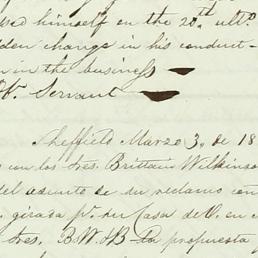 sed himself on the 20th ulto.
dden change in his conduct -
n in the business
Servant
Sheffield Marzo 3, de 18
con los Sres. Brittain Wilkinson
del asunto de su reclamo con
girada pr. su Casa de V. en
Sres. B W & B la propuesta